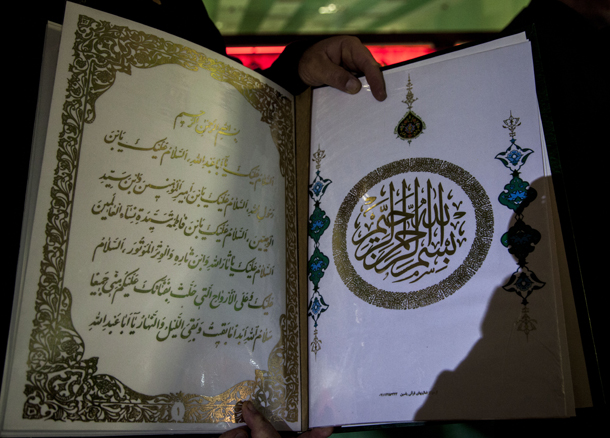 بسم الله الرحمن الرحیم
السَّلامُ عَلَیْکَ یا أَبا عَبْدِاللهِ، السَّلامُ عَلَیْکَ یَابْنَ
السَّلامُ عَلَیْکَ
السَّلامُ عَلَیْکَ یَابْنَ أَمیرِالْمُؤْمِنینَ وَابْنَ سَیِّدِ
الْوَصِیّینَ، السَّلامُ عَلَیْکَ یَابْنَ فاطِمَةَ سَیِّدَةِ نِساءِ الْعالَمینَ
السَّلامُ عَلَیْکَ یا ثارَاللهِ وَابْنَ ثارِهِ وَالْوِتْرَ الْمَوْتُورَ، السَّلامُ
عَلَیْکَ وَعَلَی الْأَرْواحِ الَّتی حَلَّتْ بِفِنائِکَ عَلَیْکُمْ مِنّی جَمیعاً
سَلامُ اللهِ أَبَداً ما بَقیتُ وَبَقِیَ اللَّیْلُ وَالنَّهارُ یا أَبا عَبْدِاللهِ
۱
بِسْمِ اللهِ الرَّحْمٰنِ الرَّحیمِ